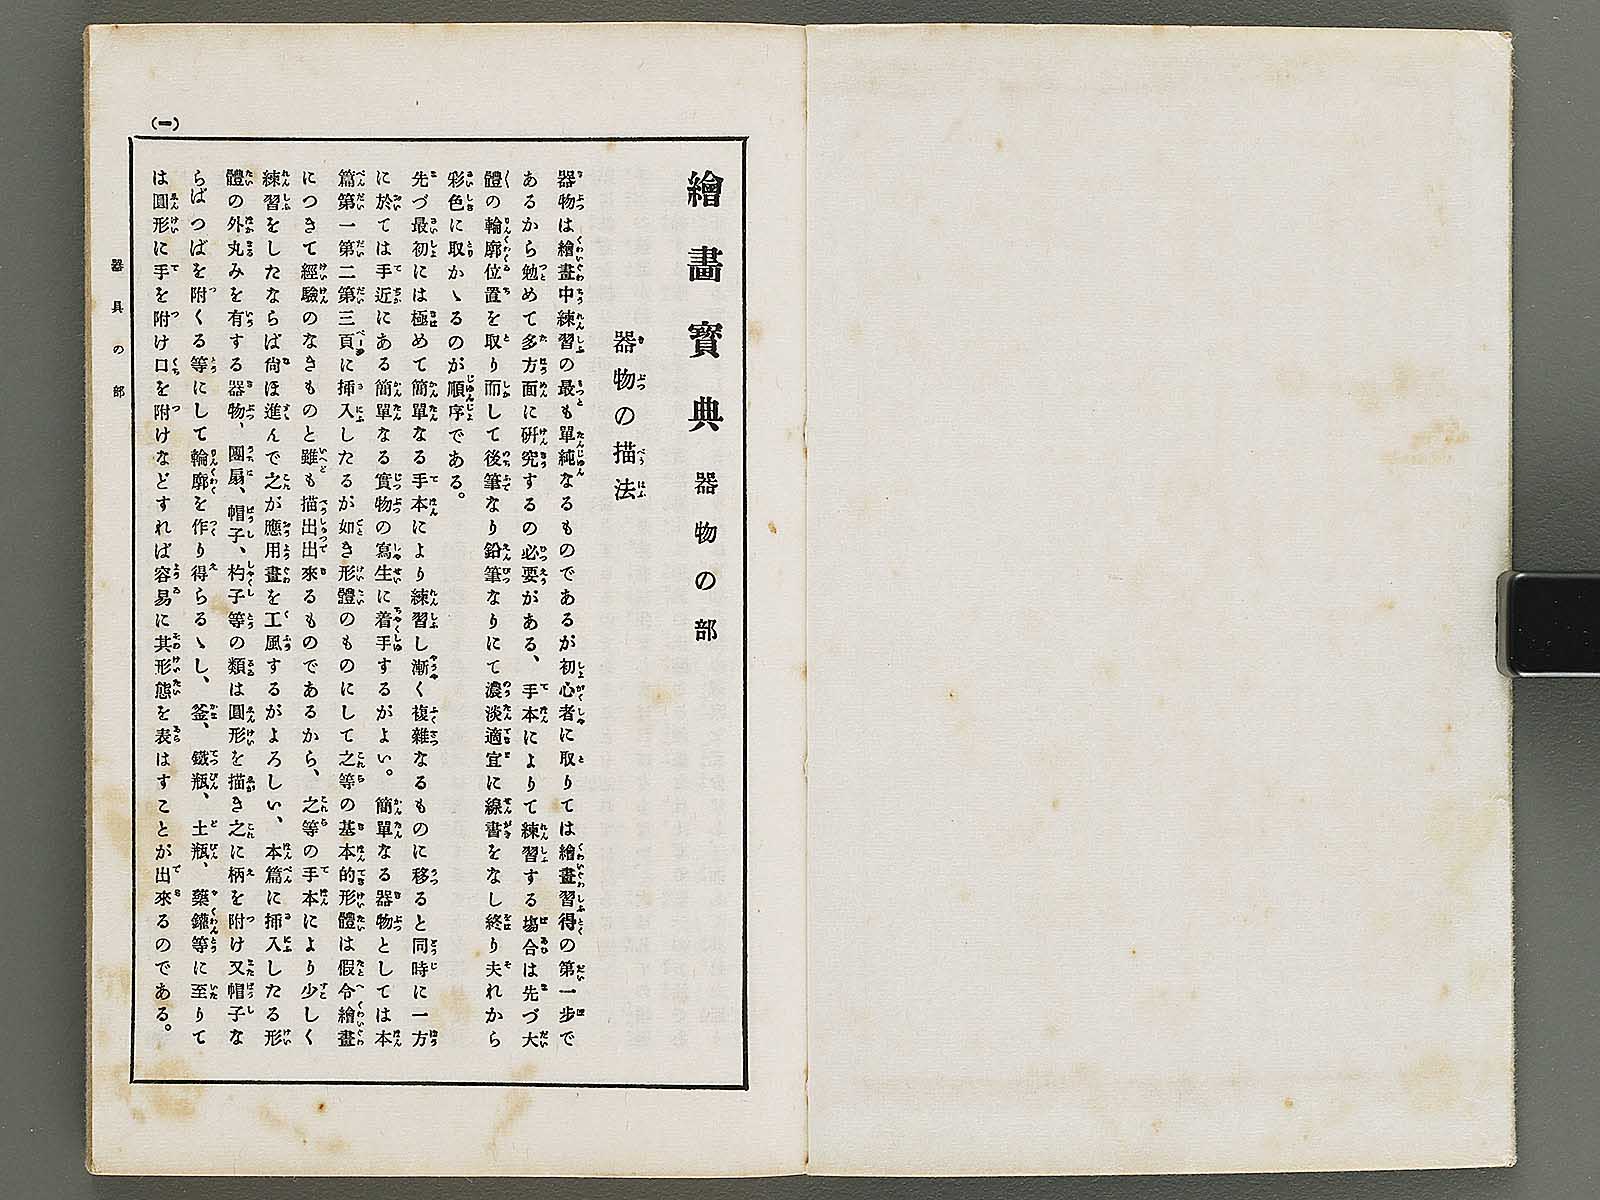 繪畫寳典 器物の部
器物の描法
器物は繪畫中練習の最も單純なるものであるが初心者に取りては繪畫習得の第一步で
あるから勉めて多方面に硏究するの必要がある、手本によりて練習する塲合は先づ大
體の輪廓位置を取り而して後筆なり鉛筆なりにて濃淡適宜に線書をなし終り夫れから
彩色に取かゝるのが順序である。
先づ最初には極めて簡單なる手本により練習し漸く複雜なるものに移ると同時に一方
に於ては手近にある簡單なる實物の寫生に着手するがよい。簡單なる器物としては本
篇第一第二第三頁に揷入したるが如き形體のものにして之等の基本的形體は假令繪畫
につきて經驗のなきものと雖も描出出來るものであるから、之等の手本により少しく
練習をしたならば尙ほ進んで之が應用畫を工風するがよろしい、本篇に揷入したる形
體の外丸みを有する器物、團扇、帽子、杓子等の類は圓形を描き之に柄を附け又帽子な
らばつばを附くる等にして輪廓を作り得らるゝし、釜、鐵瓶、土瓶、藥鑵等に至りて
は圓形に手を附け口を附けなどすれば容易に其形態を表はすことが出來るのである。
器具の部
(一)